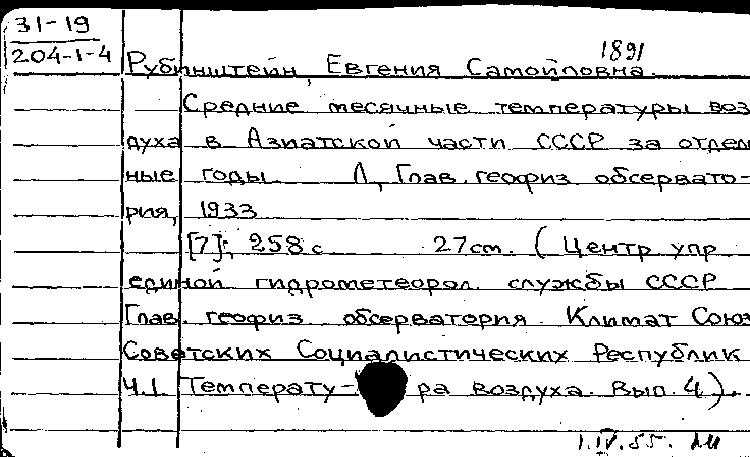 31-19
204-1-4
1891
Рубинштейн, Евгения Самойловна.
Средние месячные температуры воз
духа в Азиатской части СССР за отдел
ные годы Л, Глав. геофиз обсервато-
рия, 1933
[7]; 258 с 27 cm. (Центр упр
единой гидрометеорол. службы СССР
Глав. геофиз обсерватория. Климат Союз
Советских Социалистических Республик
ч.1 Температу- ра воздуха. Вып. 4).
1.IV.55.